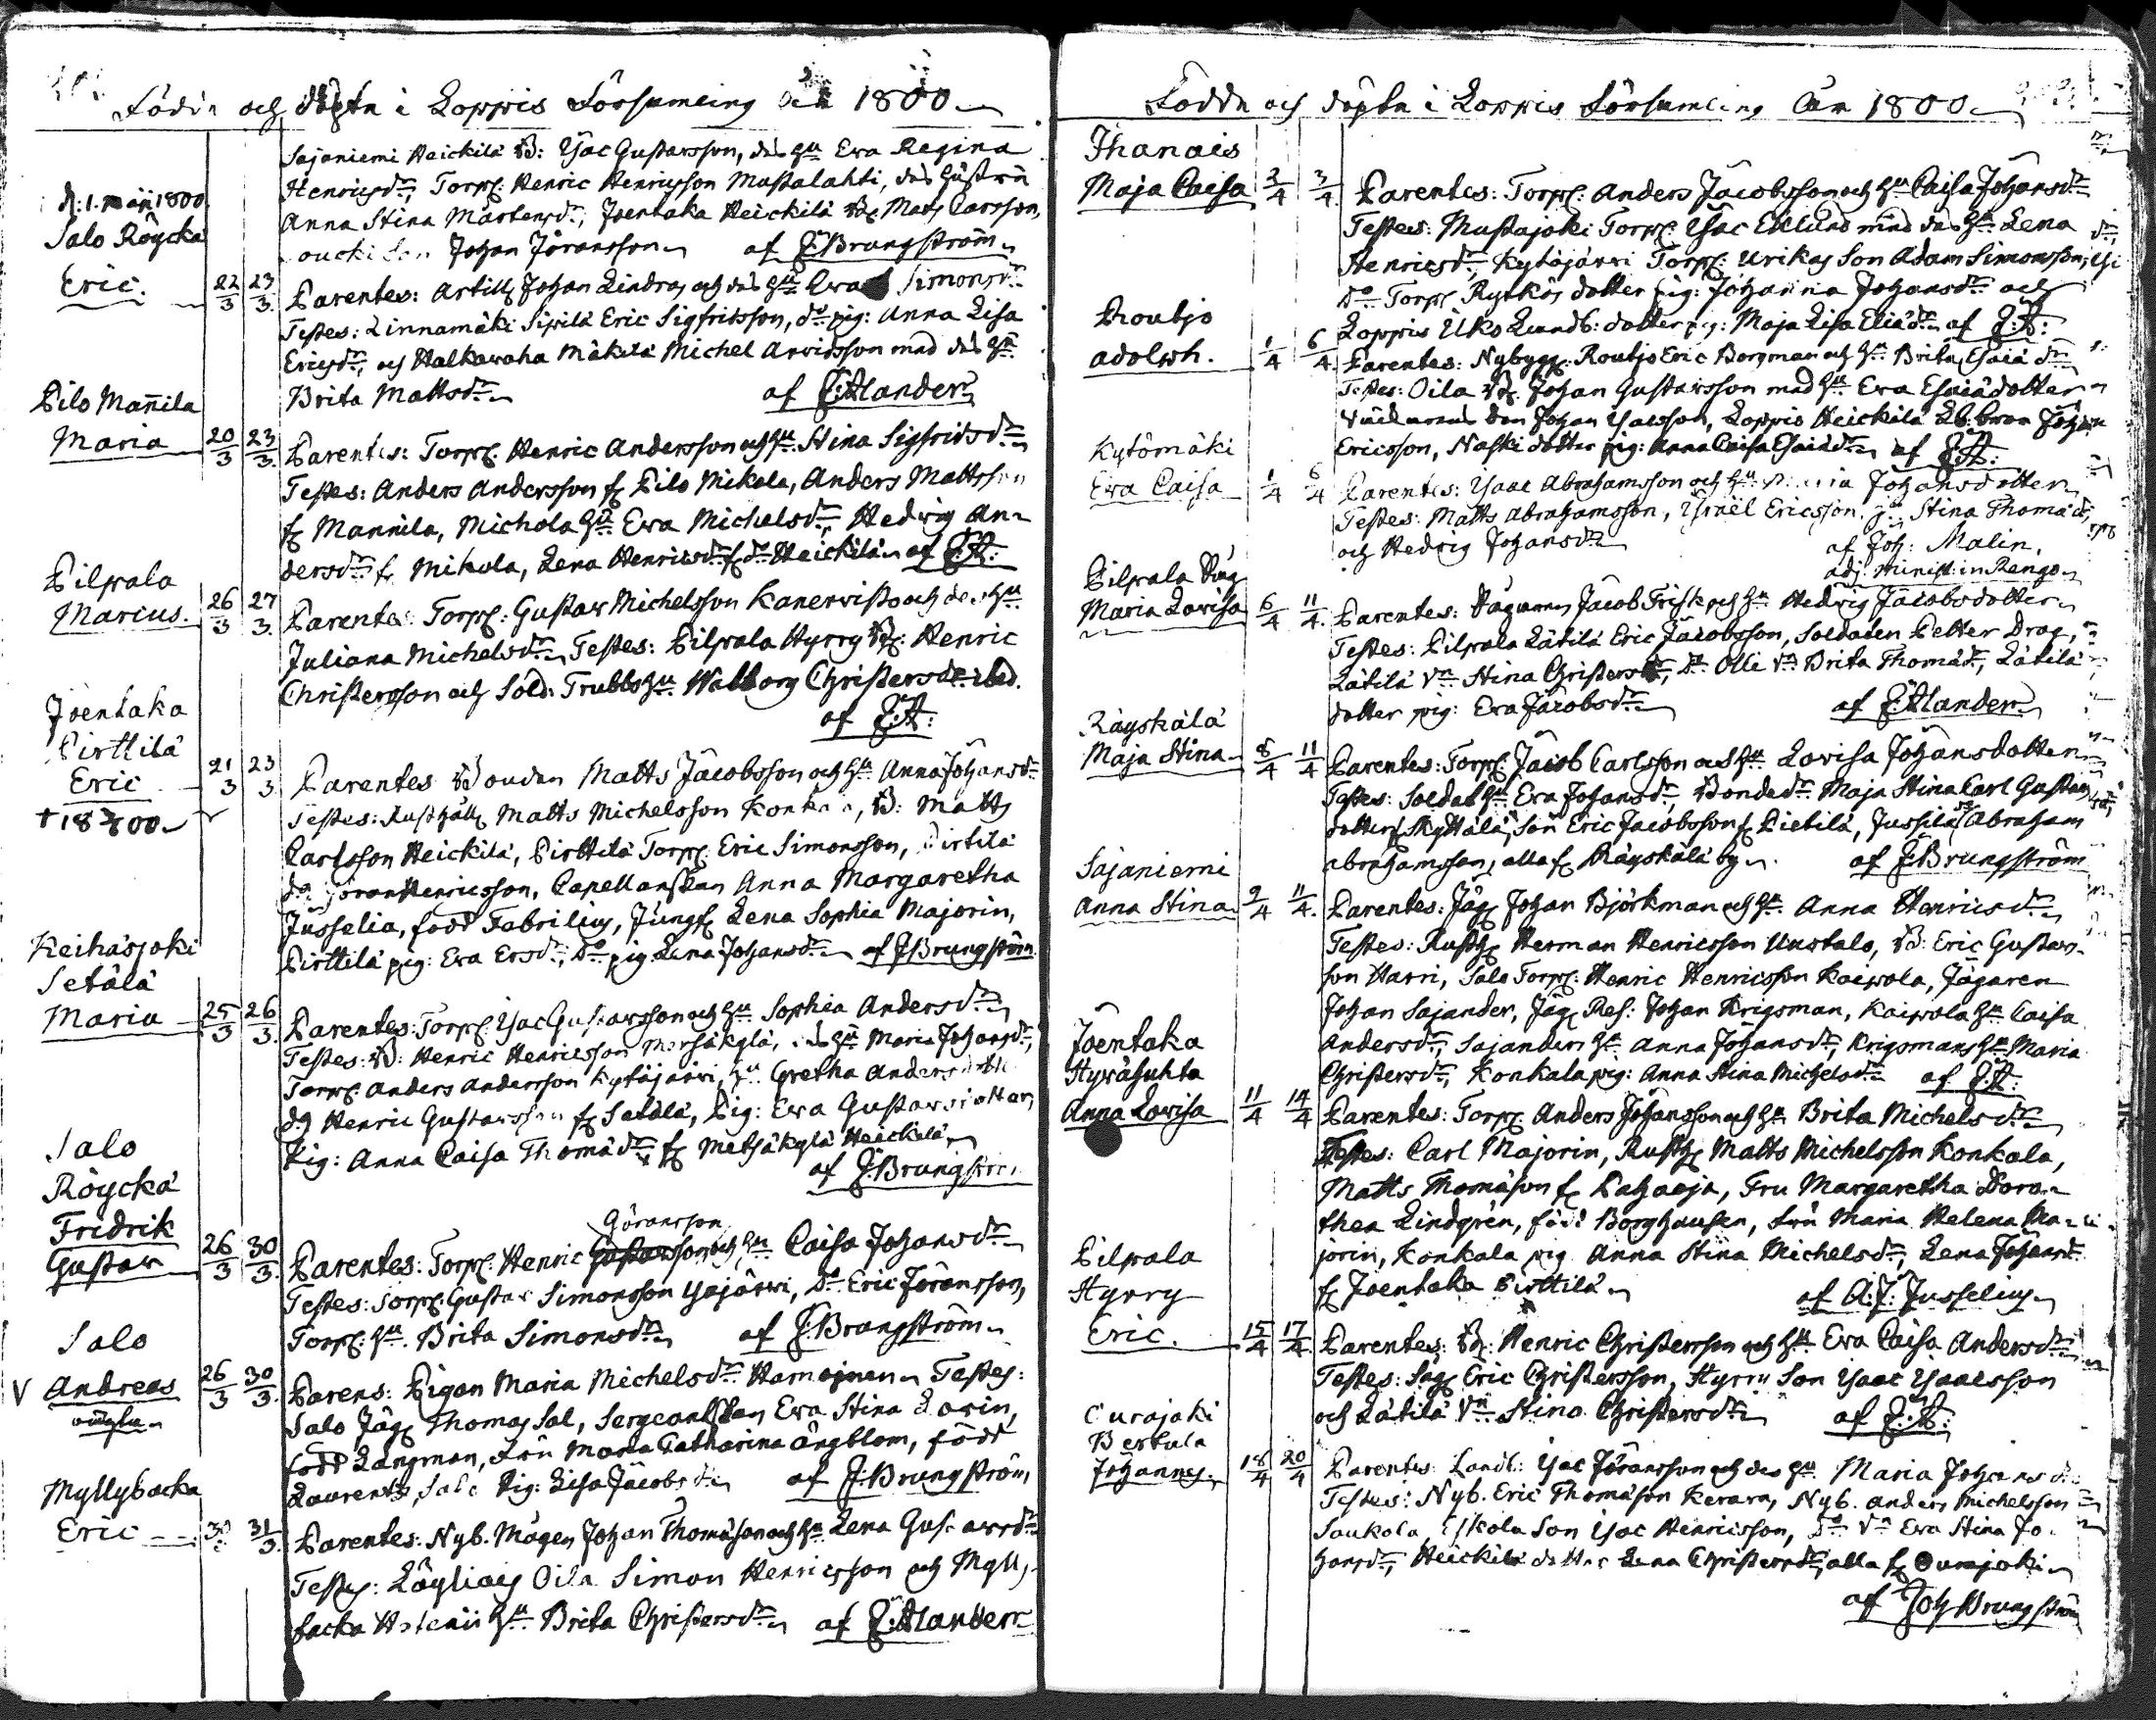 Födde och döpte i Loppis Församling År 1800
Sajaniemi Heickilä B: Isac Gustavsson, des hu Eva Regina
Henricsdr, Torp: Henric Henricsson Mustalahti, des hustru
Anna Stina Mårtensdr, Joentaka Heickilä B: Mats Carsson,
Johan Jöransson af J: Brungström
d: 1. Maji 1800
Salo Röyckä
Eric. 22/3 23/3. Parentes: Artill: Johan Lindros och des hu Eva Simonsdr
Testes: Linnamäki Sipilä Eric Sigfridsson, do pig: Anna Lisa
Ericsdr, och Halkawaha Mäkilä Michel Arvidsson med des hu
Brita Mattsdr af E: Alander
Pilo Mannila
Maria 20/3 23/3. Parentes: Torp: Henric Andersson och hu Stina Sigfridsdr
Testes: Anders Andersson f: Pilo Mikola, Anders Mattsson
f: Mannila, Michola hu Eva Michelsdr, Hedvig An-
dersdr f: Mikola, Lena Henricsdr f: do Heickilä af E:A:
Pilpala
Marcus. 26/3 27/3. Parentes: Torp: Gustav Michelsson Kanervisto och des hu
Juliana Michelsdr Testes: Pilpala Hyrry B: Henric
Christersson och Sold: Trubbs hu Walborg Christersdr
af E:A:
Joentaka
Pirttilä
Eric 21/3 23/3 Parentes Bonden Matts Jacobsson och hu Anna Johansdr
† 18 00 Testes: Rusthåll: Matts Michelsson Konkala, B: Matts
Carlsson Heickilä, Pirttilä Torp: Eric Simonsson, Pirtilä
dr: Jöran Henricsson, Capellanskan Anna Margaretha
Jusselia, född Fabrilius, Jungf: Lena Sophia Majorin,
Pirttilä pig: Eva Ersdr, do pig: Lena Johansdr af J: Brungström
Keihäsjoki
Setälä
Maria 25/3 26/3. Parentes: Torp: Isac Gustavsson och hu Sophia Andersdr
Testes: B: Henric Henricsson Metsäkylä, des hu Maria Johansdr,
Torp: Anders Andersson Kytöjärvi, hu Gretha Andersdotter
dg Henric Gustavsson f: Setälä, Pig: Eva Gustavsdotter,
Pig: Anna Caisa Thomædr f: Metsäkylä Heickilä
af J: Brungström
Salo
Röyckä
Fridrik
Göransson
Gustav 26/3 30/3. Parentes: Torp: Henric Gustavsson och hu Caisa Johansdr
Testes: Torp: Gustav Simonsson Isojärvi, Do Eric Jöransson,
Torp: hu. Brita Simonsdr af J: Brungström
Salo
V Andreas 26/3 30/3. Parens: Pigan Maria Michelsdr Hamoinen Testes:
oächta Salo Jäg: Thomas Sal, Sergeantskan Eva Stina Lorin,
född Långman, Frun Maria Catharina Ångblom, född
Laurents, Salo Pig: Lisa Jacobsdr af J: Brungström
Myllybacka
Eric 30 31/3. Parentes: Nyb. Mågen Johan Thomæson och hu Lena Gustavsdr
Testes: Läyliäis Oila Simon Henricsson och Mylly-
backa hu Brita Christersdr af E: Alander
Födde och döpte i Loppis Församling År 1800
Thanais
Maja Caisa 2/4 3/4. Parentes: Torp: Anders Jacobsson och hu Caisa Johansdr
Testes: Mustajoki Torp: Isac Eklund med des hu Lena
Henricsdr, Kytöjärvi Torp: Urikas Son Adam Simonsson,
do Torp: Rytkös dotter pig: Johanna Johansdr och
Loppis Uko Lundb: dotter pig: Maja Lisa Eliædr af E:A:
Routjo
Adolph. 1/4 6/4. Parentes: Nybygg: Routjo Eric Borgman och hu Brita Esaiædr
Testes: Oila B: Johan Gustavsson med hu Eva Esaiædotter
Johan Isacsson, Loppis Heickilä Johan
Ericsson, Naski dotter pig: Anna Caisa Esaiædr af E:A:
Kytömäki
Eva Caisa 1/4 6/4 Parentes: Isaac Abrahamsson och hu Maria Johansdotter
Testes: Matts Abrahamsson, Israël Ericsson, Stina Thomædr
och Hedvig Johansdr af Joh: Malin,
adj. Minist: in Rengo
Pilpala
Maria Lovisa 6/4 11/4. Parentes: Jacob Frisk och hu Hedvig Jacobsdotter
Testes: Pilpala Lätilä Eric Jacobsson, Soldaten Petter Drag,
Lätilä Vn Stina Christersdr, Do Olli Vn Brita Thomædr, Lätilä
dotter pig: Eva Jacobsdr af E: Alander
Räyskälä
Maja Stina 8/4 11/4 Parentes: Torp: Jacob Carlsson och hu Lovisa Johansdotter
Testes: Soldat hu Eva Johansdr, Bondedr Maja Stina Carl Gustavs
dotter f: Skyttälä, Son Eric Jacobsson f: Pietilä, Jussila Abraham
Abrahamsson, alla f: Räyskälä by af J: Brungström
Sajaniemi
Anna Stina 9/4 11/4. Parentes: Jäg: Johan Björkman och hu Anna Henricsdr
Testes: Rusth: Herman Henricsson Unstalo, B: Eric Gustavs-
son Harri, Salo Torp: Henric Henricsson Kaipola, Jägaren
Johan Sajander, Jäg: Res: Johan Krigsman, Kaipola hu Caisa
Andersdr, Sajanders hu Anna Johansdr, Krigsmans hu Maria
Christersdr, Konkala pig: Anna Stina Michelsdr af E:A:
Joentaka
Hypäsuhta
Anna Lovisa 11/4 14/4 Parentes: Torp: Anders Johansson och hu Brita Michelsdr
Testes: Carl Majorin, Rusth: Matts Michelsson Konkala,
Matts Thomæson f: Pataoja, Fru Margaretha Doro-
thea Lindgrén, född Borghausen, Frun Maria Helena Ma-
jorin, Konkala pig Anna Stina Michelsdr, Lena Johansdr
f: Joentaka Pirttilä af A:J: Jusselius
Pilpala
Hyrry
Eric. 15/4 17/4. Parentes: B: Henric Christersson och hu Eva Caisa Andersdr
Testes: Jäg: Eric Christersson, Hyrry Son Isaac Isaacsson
och Lätilä Vn Stina Christersdr af E:A:
Ourajoki
Bertula
Johannes 18/4 20/4 Parentes Landb: Isac Jöransson och des hu Maria Johansdr
Testes: Nyb. Eric Thomæson Kerara, Nyb. Anders Michelsson
Saukola, Eskola Son Isac Henricsson, Do Vn Eva Stina Jo-
hansdr, Heickilä dotter Lena Christersdr, alla f: Ourajoki
af Joh Brungström